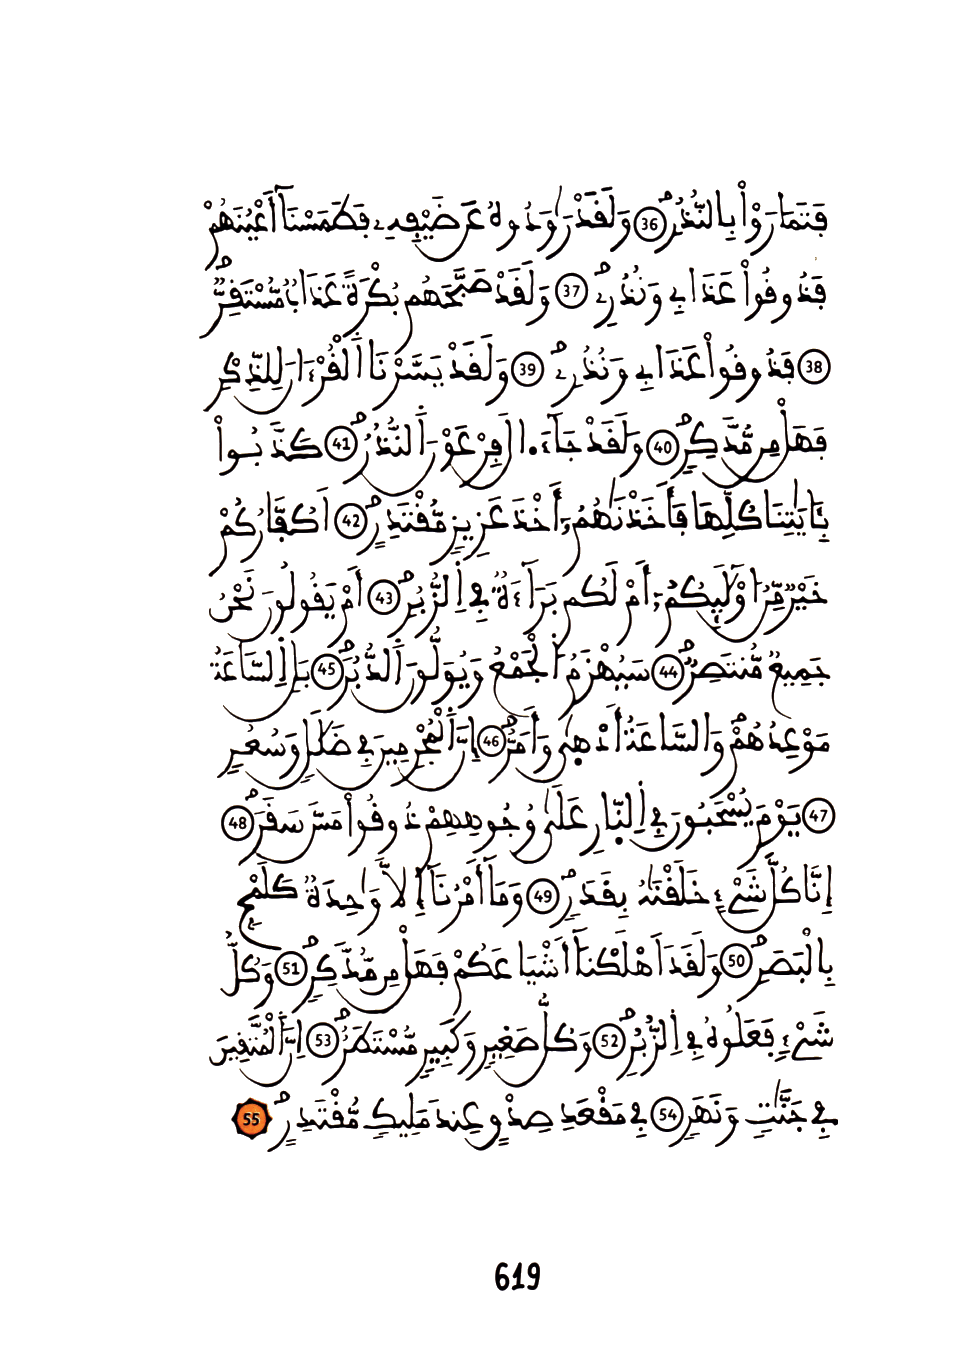 فَتَمَارَوْاْ بِالنُّذُرِ 36 وَلَقَدْ رَٰوَدُوهُ عَن ضَيْفِهِۦ فَطَمَسْنَآ أَعْيُنَهُمْ
فَذُوقُواْ عَذَابِے وَنُذُرِۦ 37 وَلَقَدْ صَبَّحَهُم بُكْرَةً عَذَابٌ مُّسْتَقِرٌّ
38 فَذُوقُواْ عَذَابِے وَنُذُرِۦ 39 وَلَقَدْ يَسَّرْنَا اَ۬لْقُرْءَانَ لِلذِّكْرِ
فَهَلْ مِن مُّدَّكِرٍ 40 وَلَقَدْ جَآءَ ا•لَ فِرْعَوْنَ اَ۬لنُّذُرُ 41 كَذَّبُواْ
بِـَٔايَٰتِنَا كُلِّهَا فَأَخَذْنَٰهُمُۥٓ أَخْذَ عَزِيزٍ مُّقْتَدِرٍ 42 اَكُفَّارُكُمْ
خَيْرٌ مِّنُ ا۟وْلَٰٓئِكُمُۥٓ أَمْ لَكُم بَرَآءَةٌ فِے اِ۬لزُّبُرِ 43 أَمْ يَقُولُونَ نَحْنُ
جَمِيعٌ مُّنتَصِرٌ 44 سَيُهْزَمُ اُ۬لْجَمْعُ وَيُوَلُّونَ اَ۬لدُّبُرَ 45 بَلِ اِ۬لسَّاعَةُ
مَوْعِدُهُمْ وَالسَّاعَةُ أَدْهَىٰ وَأَمَرُّ 46 إِنَّ اَ۬لْمُجْرِمِينَ فِے ضَلَٰلٍ وَسُعُرٍ
47 يَوْمَ يُسْحَبُونَ فِے اِ۬لنّ۪ارِ عَلَىٰ وُجُوهِهِمْ ذُوقُواْ مَسَّ سَقَرَ 48
إِنَّا كُلَّ شَےْءٍ خَلَقْنَٰهُ بِقَدَرٍ 49 وَمَآ أَمْرُنَآ إِلَّا وَٰحِدَةٌ كَلَمْحٍۢ
بِالْبَصَرِ 50 وَلَقَدَ اَهْلَكْنَآ أَشْيَاعَكُمْ فَهَلْ مِن مُّدَّكِرٍ 51 وَكُلُّ
شَےْءٍ فَعَلُوهُ فِے اِ۬لزُّبُرِ 52 وَكُلُّ صَغِيرٍ وَكَبِيرٍ مُّسْتَطَرٌ 53 إِنَّ اَ۬لْمُتَّقِينَ
فِے جَنَّٰتٍ وَنَهَرٍ 54 فِے مَقْعَدِ صِدْقٍ عِندَ مَلِيكٍ مُّقْتَدِرٍ 55
619